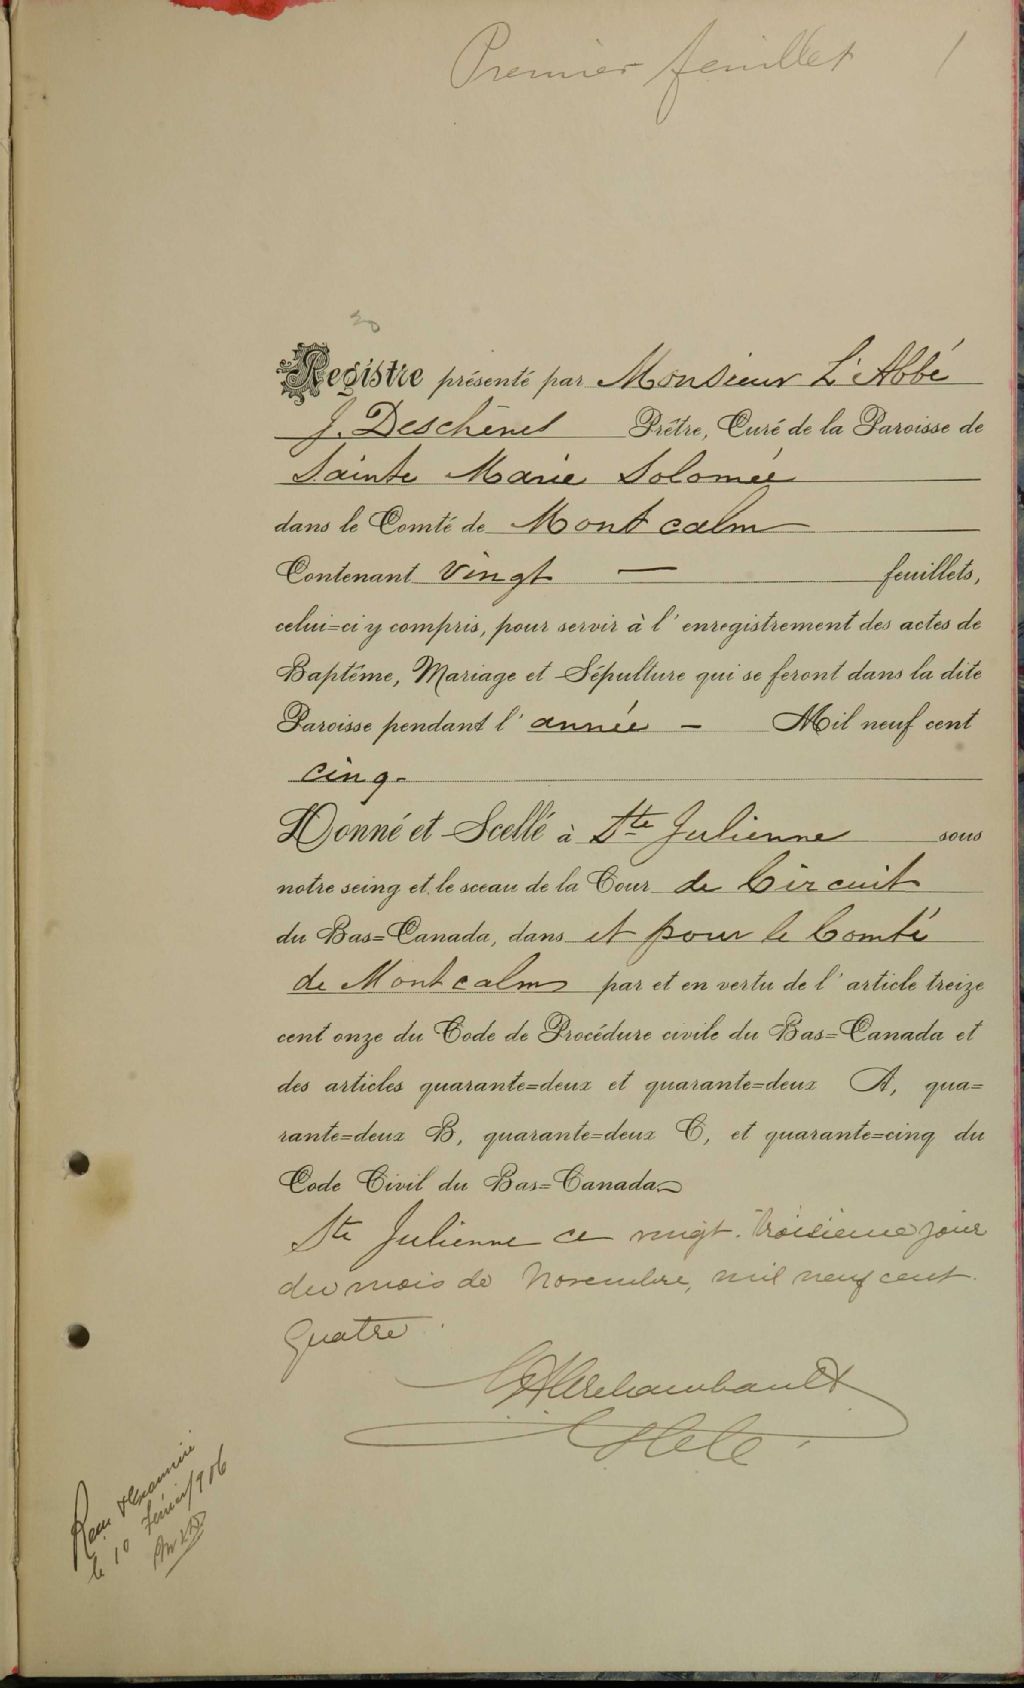 Premier feuillet 1
Registre présenté par Monsieur L'Abbé
J. Deschênes Prêtre, Curé de la Paroisse de
Sainte Marie Solomée
dans le Comté de Montcalm
Contenant vingt — feuillets,
celui=ci y compris, pour servir à l'enregistrement des actes de
Baptême, Mariage et Sépulture qui se feront dans la dite
Paroisse pendant l'année — Mil neuf cent
cinq.
Donné et Scellé à Ste Julienne sous
notre seing et le sceau de la Cour de Circuit
du Bas=Canada, dans et pour le Comté
de Montcalm par et en vertu de l'article treize
cent onze du Code de Procédure civile du Bas=Canada et
des articles quarante=deux et quarante=deux A, qua=
rante=deux B, quarante=deux C, et quarante=cinq du
Code Civil du Bas=Canada
Ste Julienne ce vingt-troisième jour
du mois de Novembre, mil neuf cent
quatre.
Archambault
Reçu & Examiné
le 10 Février 1906